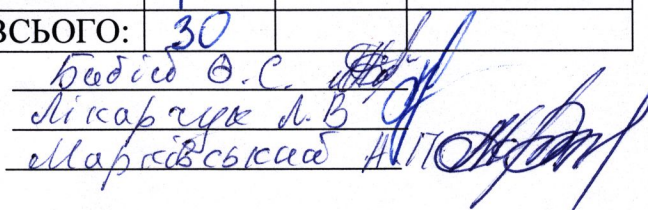 ВСЬОГО: 30
Бабієв О.С.
Лікарчук Л.В
Марківський А.П